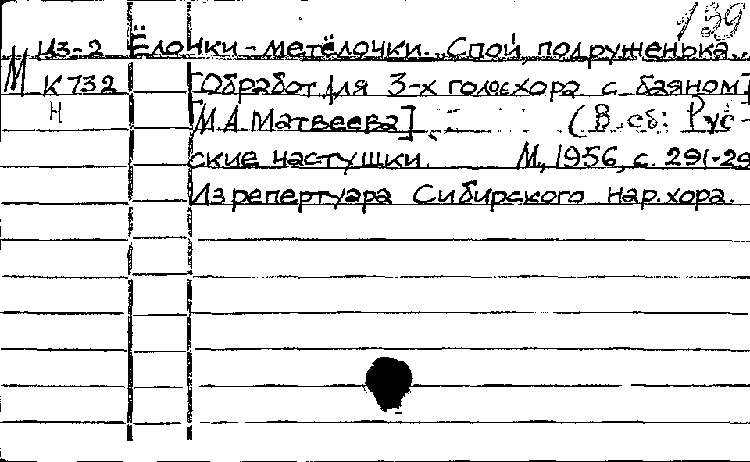 139
М из-2 Ёлочки-метёлочки... Спой, подруженька...
К 732 [Обработ. для 3-х голос. хора с баяном]
Н [М.А. Матвеева]. (В сб: Рус-
ские частушки. М., 1956, с. 291-29
Из репертуара Сибирского нар. хора.